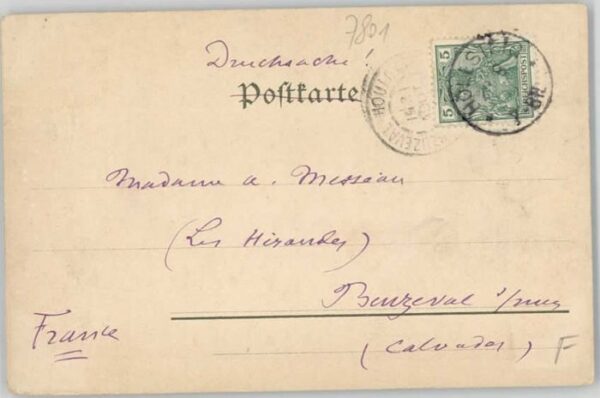 7801
Drucksache!
Postkarte
5 5
REICHSPOST
HOUL
BEUZEVAL
Madame a. Messean
(Les Hirondes)
Benzeval s/mer
France
(Calvados)
F